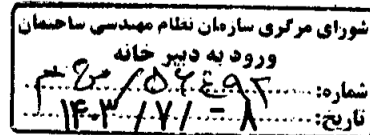 شورای مرکزی سازمان نظام مهندسی ساختمان
ورود به دبیر خانه
شماره: ۵۶۴۹۲/
تاریخ: ۱۴۰۳/۷/-۸